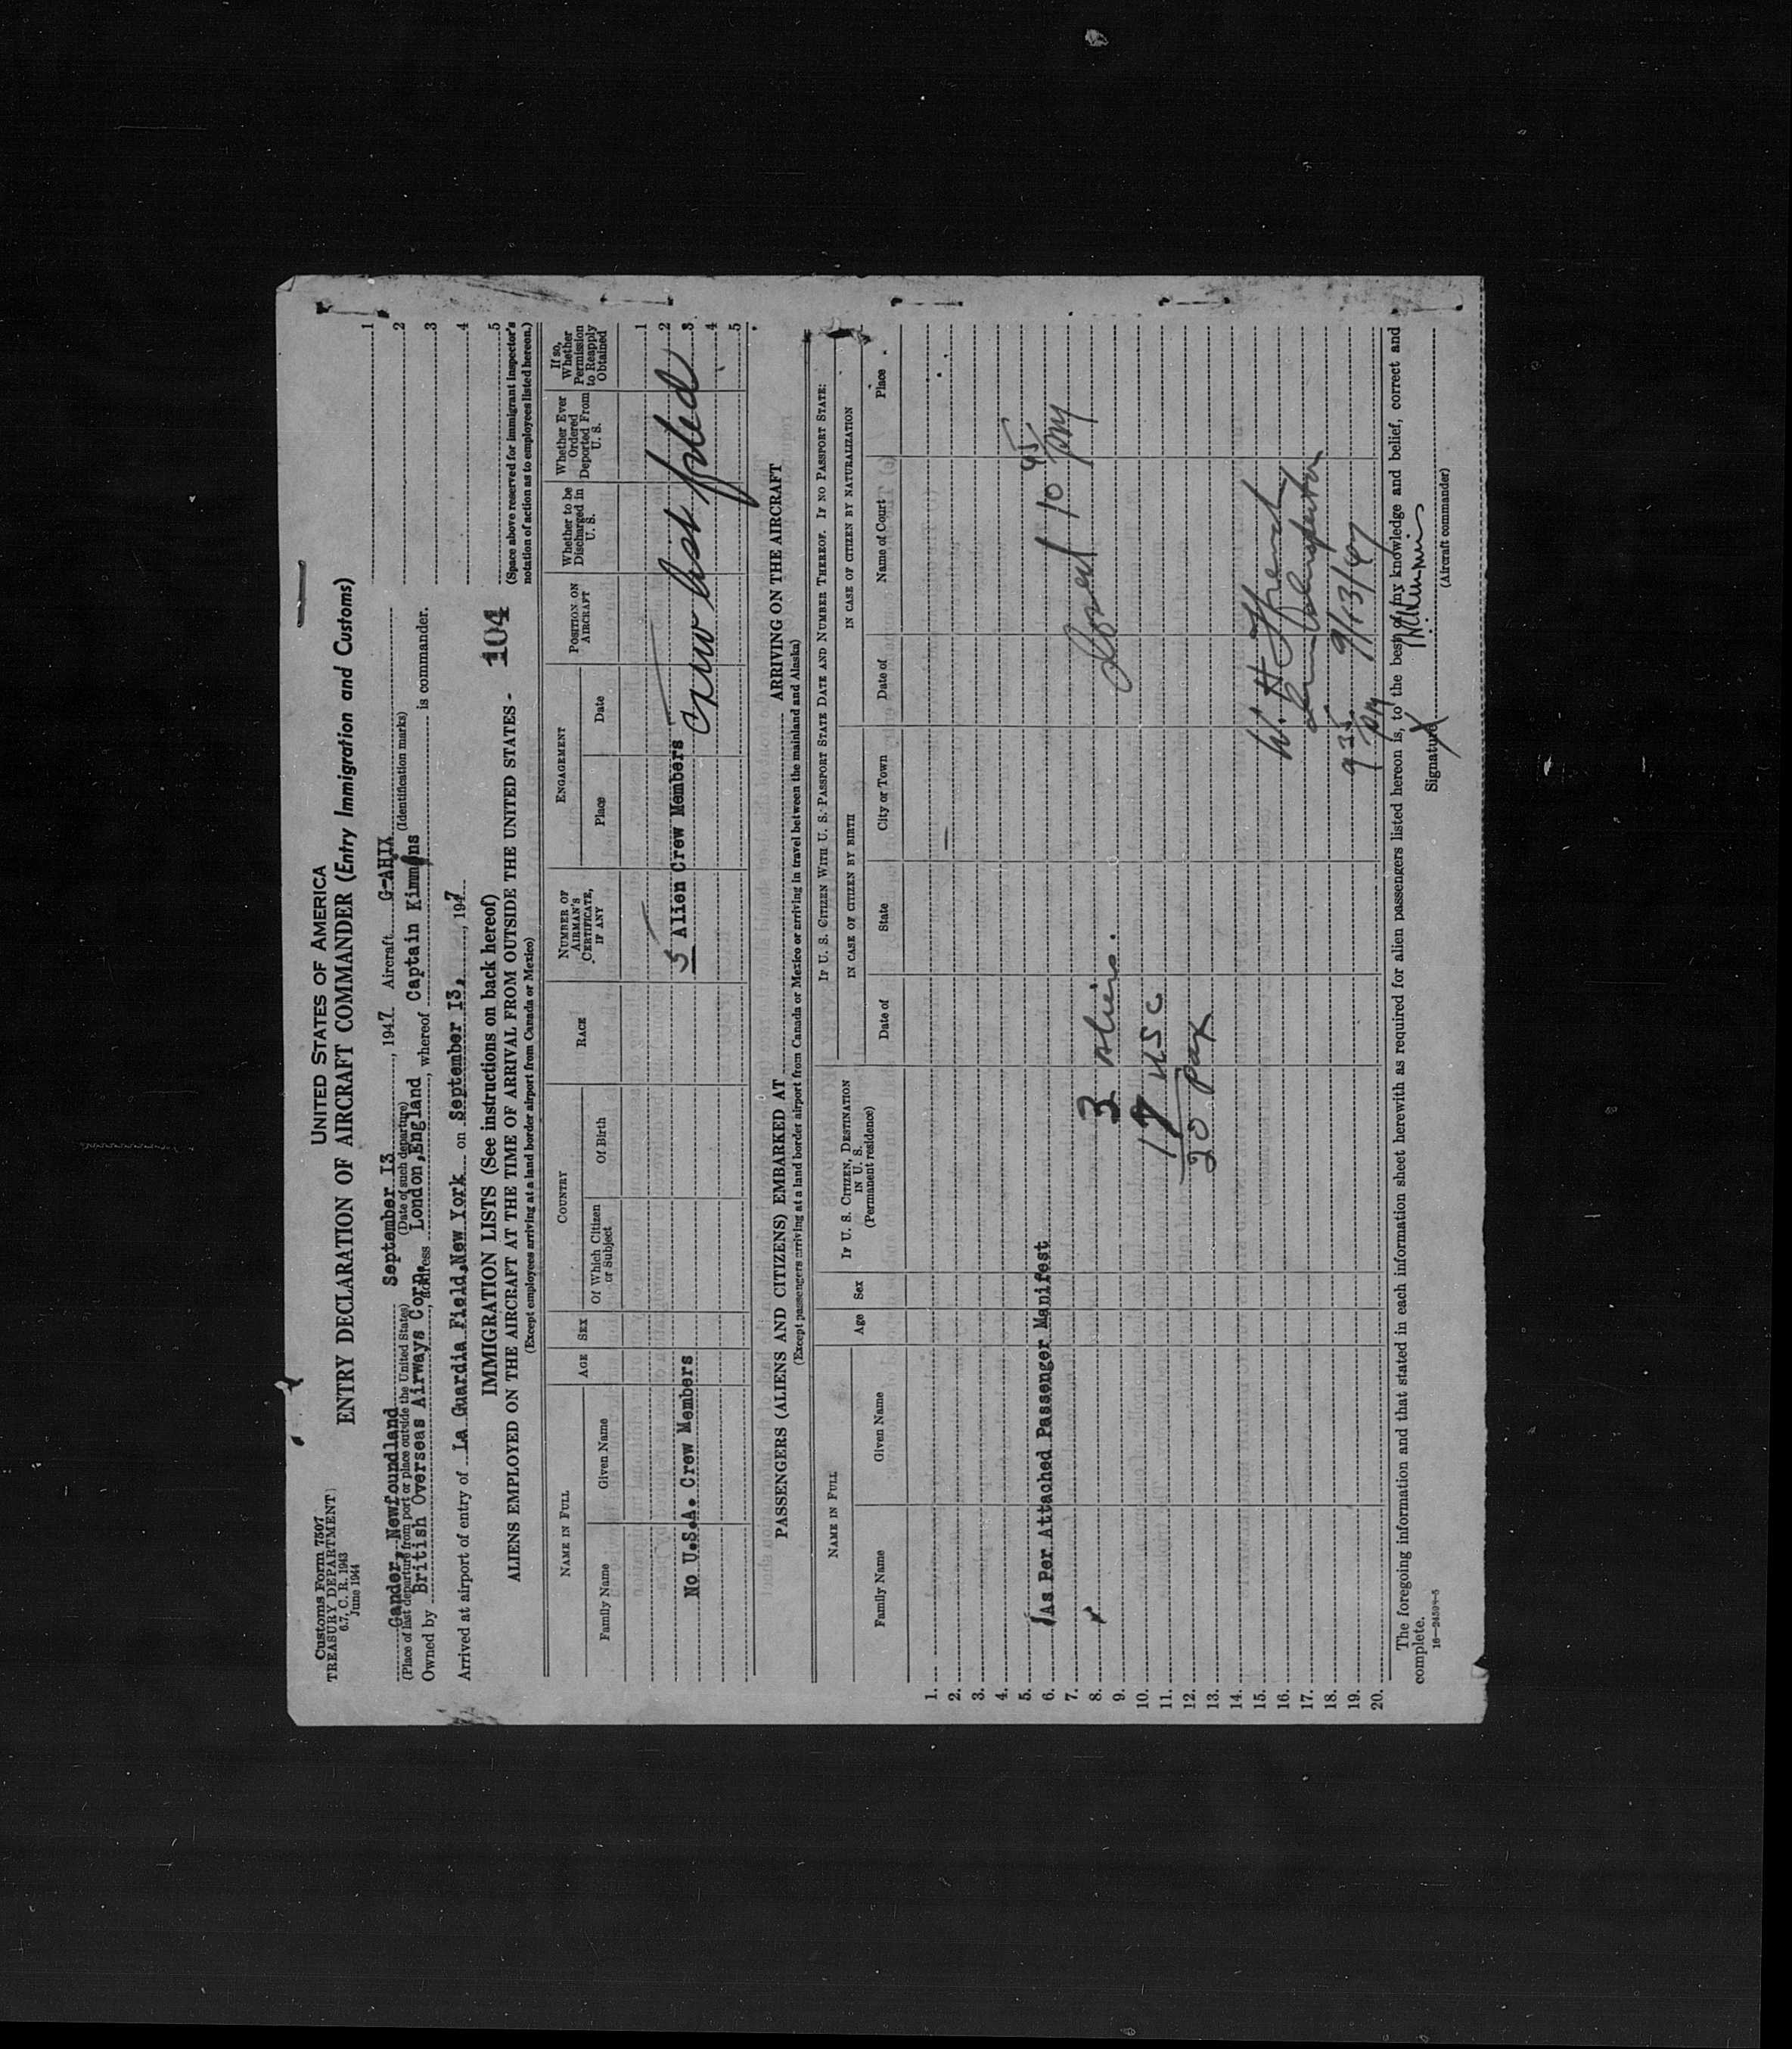 Customs Form 7507
TREASURY DEPARTMENT
6.7, C. R. 1943
June 1944
UNITED STATES OF AMERICA
ENTRY DECLARATION OF AIRCRAFT COMMANDER (Entry Immigration and Customs)
Gander, Newfoundland September 13, 1947 Aircraft G-AHIX
(Place of last departure from port or place outside the United States) (Date of such departure) (Identification marks)
Owned by British Overseas Airways Corp., Address London, England, whereof Captain Kimmins is commander.
Arrived at airport of entry of La Guardia Field, New York on September 13, 1947
1
2
3
4
5
(Space above reserved for immigrant inspector's
notation of action as to employees listed hereon.)
IMMIGRATION LISTS (See instructions on back hereof)
ALIENS EMPLOYED ON THE AIRCRAFT AT THE TIME OF ARRIVAL FROM OUTSIDE THE UNITED STATES - 104
(Except employees arriving at a land border airport from Canada or Mexico)
NAME IN FULL
Family Name Given Name
AGE
SEX
COUNTRY
Of Which Citizen or Subject
Of Birth
RACE
NUMBER OF AIRMAN'S CERTIFICATE, IF ANY
ENGAGEMENT
Place Date
POSITION ON AIRCRAFT
Whether to be Discharged in U. S.
Whether Ever Ordered Deported From U. S.
If so, Whether Permission to Reapply Obtained
1
2
No U.S.A. Crew Members 5 Alien Crew Members Crew list 3
4
5
PASSENGERS (ALIENS AND CITIZENS) EMBARKED AT ARRIVING ON THE AIRCRAFT
(Except passengers arriving at a land border airport from Canada or Mexico or arriving in travel between the mainland and Alaska)
NAME IN FULL
Family Name Given Name
Age
Sex
IF U. S. CITIZEN, DESTINATION IN U. S.
(Permanent residence)
IF U. S. CITIZEN WITH U. S. PASSPORT STATE DATE AND NUMBER THEREOF. IF NO PASSPORT STATE:
IN CASE OF CITIZEN BY BIRTH IN CASE OF CITIZEN BY NATURALIZATION
Date of State City or Town Date of Name of Court Place
1.
2.
3.
4.
5.
6. As Per Attached Passenger Manifest
7. 10 45 PM
8.
9. 3 Aliens.
10.
11. 17 USC
12.
13. 20 Pax
14.
15.
16. W. H.
17.
18.
19. 9/13/47
20. 9 35 PM
The foregoing information and that stated in each information sheet herewith as required for alien passengers listed hereon is, to the best of my knowledge and belief, correct and
complete.
Signature X
(Aircraft commander)
16—24594-5